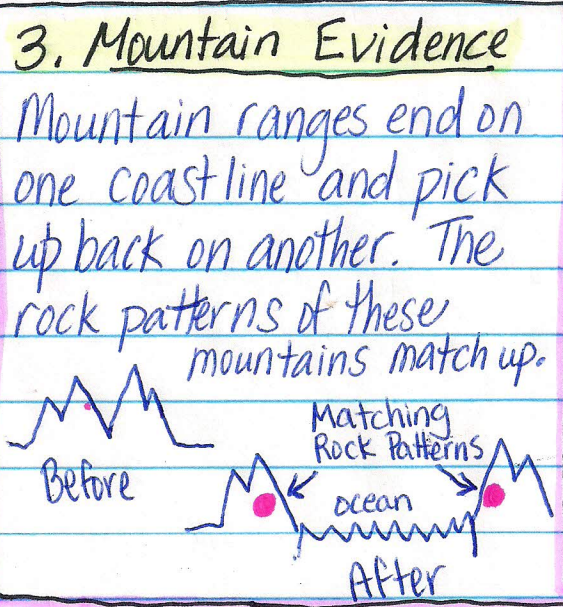 3. Mountain Evidence
Mountain ranges end on
one coastline and pick
up back on another. The
rock patterns of these
mountains match up.
Before
Matching
Rock Patterns
ocean
After